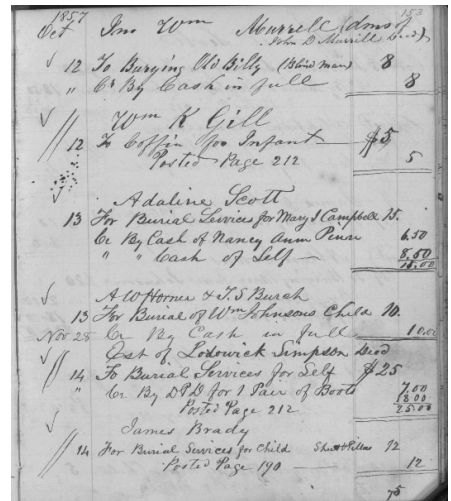 1857 153
Oct Jno Wm Murrell (Adms of
John D Murrill Decd)
12 To Burying Old Billy (Blind man) 8
" Cr By Cash in full 8
Wm K Gill
12 To Coffin for Infant $5
Posted Page 212 5
Adaline Scott
13 For Burial Services for Mary J Campbell 15.
Cr By Cash of Nancy Ann Penn 6.50
" " Cash of Self 8.50
15.00
A W Horner & T. S Burch
13 For Burial of Wm Johnsons Child 10.
Nov 28 Cr By Cash in full 10.00
Est of Lodowick Simpson Decd
14 To Burial Services for Self $25
" Cr By D P D for 1 Pair of Boots 7.00
18 00
Posted Page 212 25.00
James Brady
14 For Burial Services for Child 12
Posted Page 190 12
75